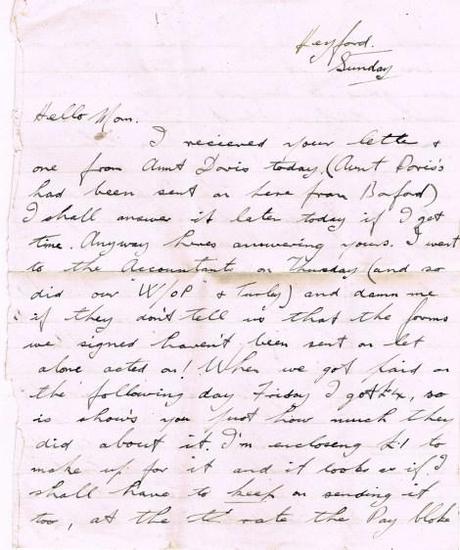 Heyford.
Sunday
Hello Mom.
I recieved your lette &
one from Aunt Doris today. (Aunt Doris's
had been sent on here from Boxford)
I shall answer it later today if I get
time. Anyway heres answering yours. I went
to the Accountants on Thursday (and so
did our "W/oP" & Turley) and damn me
if they don't tell us that the forms
we signed haven't been sent on let
alone acted on! When we got paid on
the following day Friday I got £4, so
is show's you just how much they
did about it. I'm enclosing £1 to
make up for it and it looks as if I
shall have to keep on sending it
too, at the rate the Pay bloke